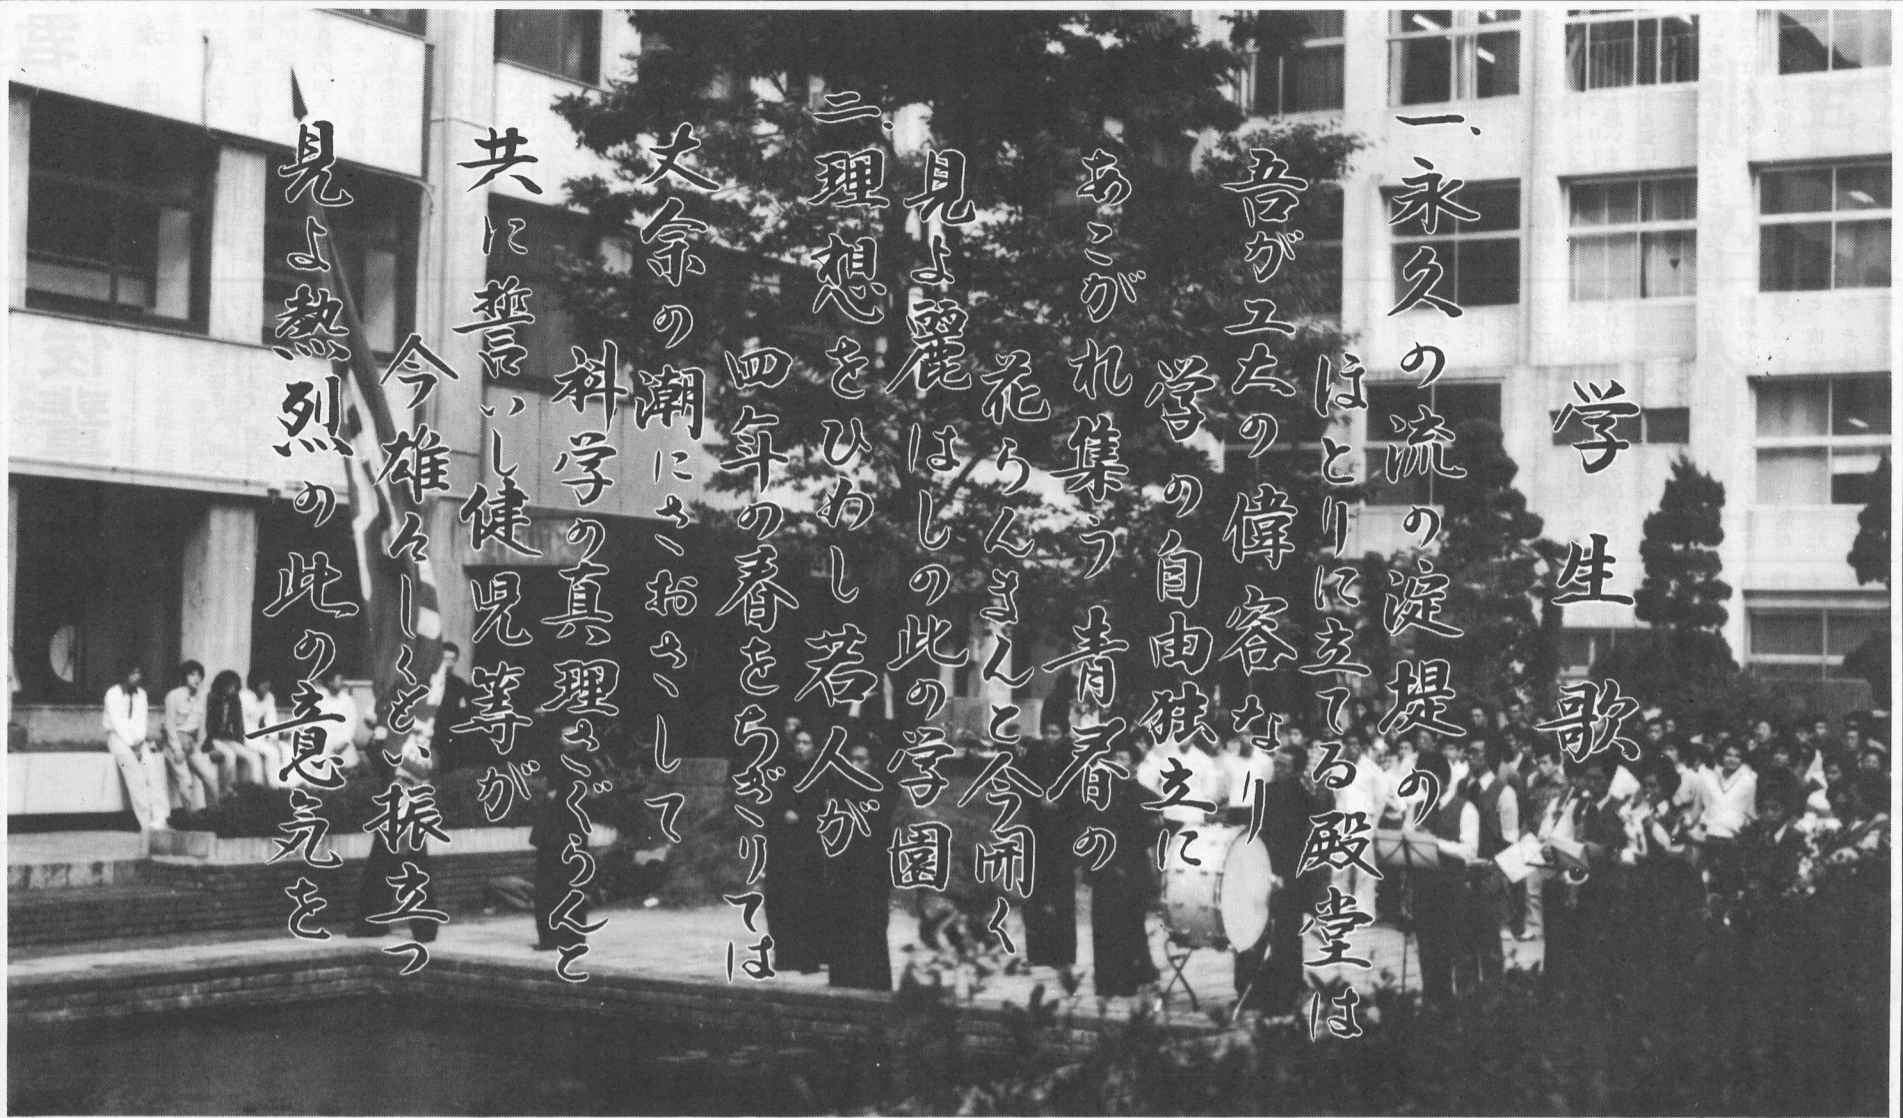 学生歌
一、永久の流の淀堤の
ほとりに立てる殿堂は
吾が工大の偉容なり
学の自由独立に
あこがれ集う青春の
花らんまんと今開く
見よ麗はしの此の学園
二、理想をひめし若人が
四年の春をちぎりては
丈余の潮にさゝおさゝして
科学の真理さぐらんと
共に誓いし健児等が
今雄々しくとい振立つ
見よ熱烈の此の意気を